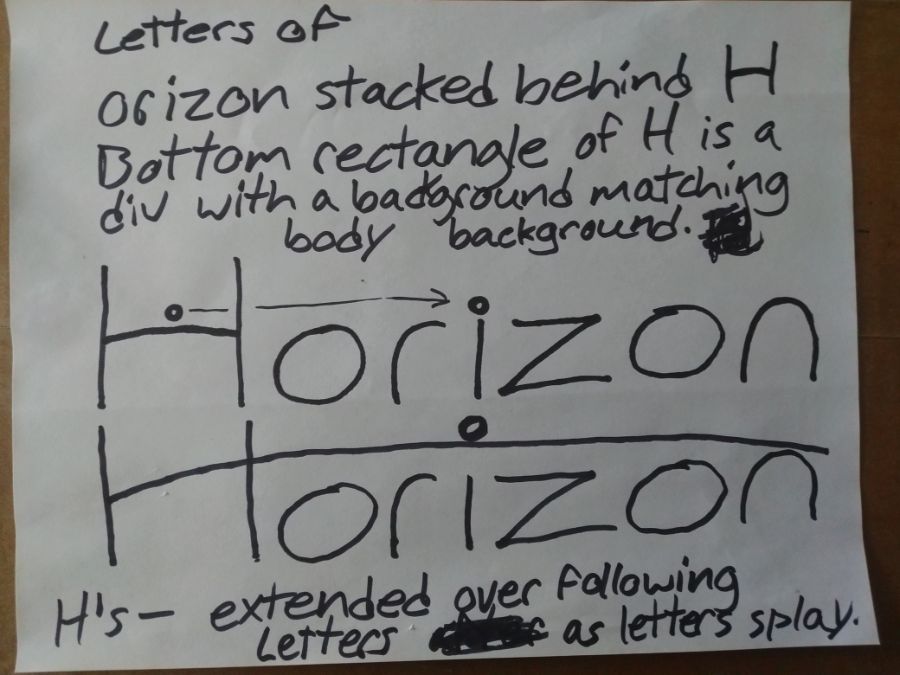 Letters of
orizon stacked behind H
Bottom rectangle of H is a
div with a background matching
body background.
Horizon
Horizon
H's - extended over following
Letters as letters splay.